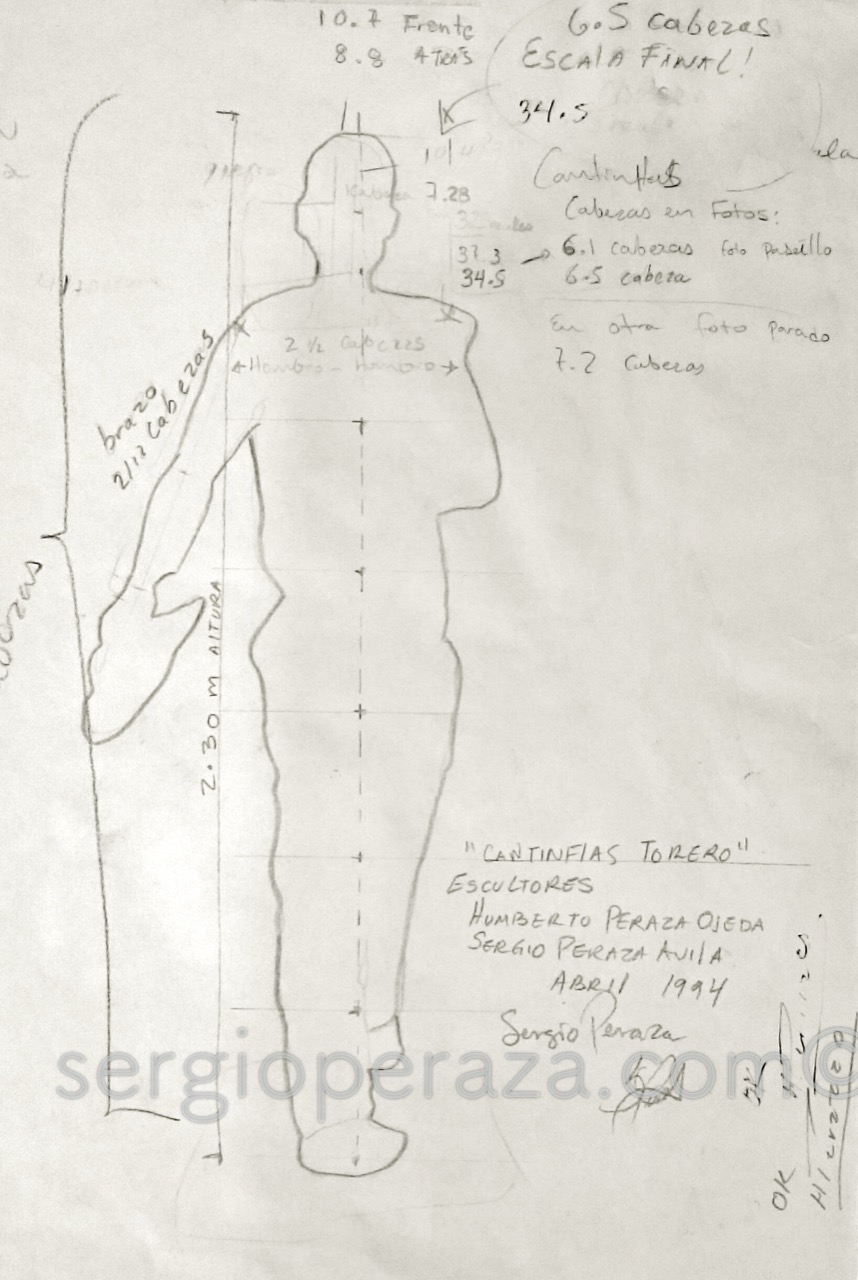 10.7 Frente
8.8 ATRÁS
6.5 cabezas
ESCALA FINAL!
34.5
Cantinflas
Cabezas en Fotos:
6.1 cabezas foto pasillo
6.5 cabeza
En otra foto parado
7.2 Cabezas
7.28
37.3
34.5
2 1/2 Cabezas
Hombro - Hombro
brazo
2 1/2 Cabezas
2.30 m ALTURA
"CANTINFLAS TORERO"
ESCULTORES
HUMBERTO PERAZA OJEDA
SERGIO PERAZA AVILA
ABRIL 1994
Sergio Peraza
sergioperaza.com©
OK